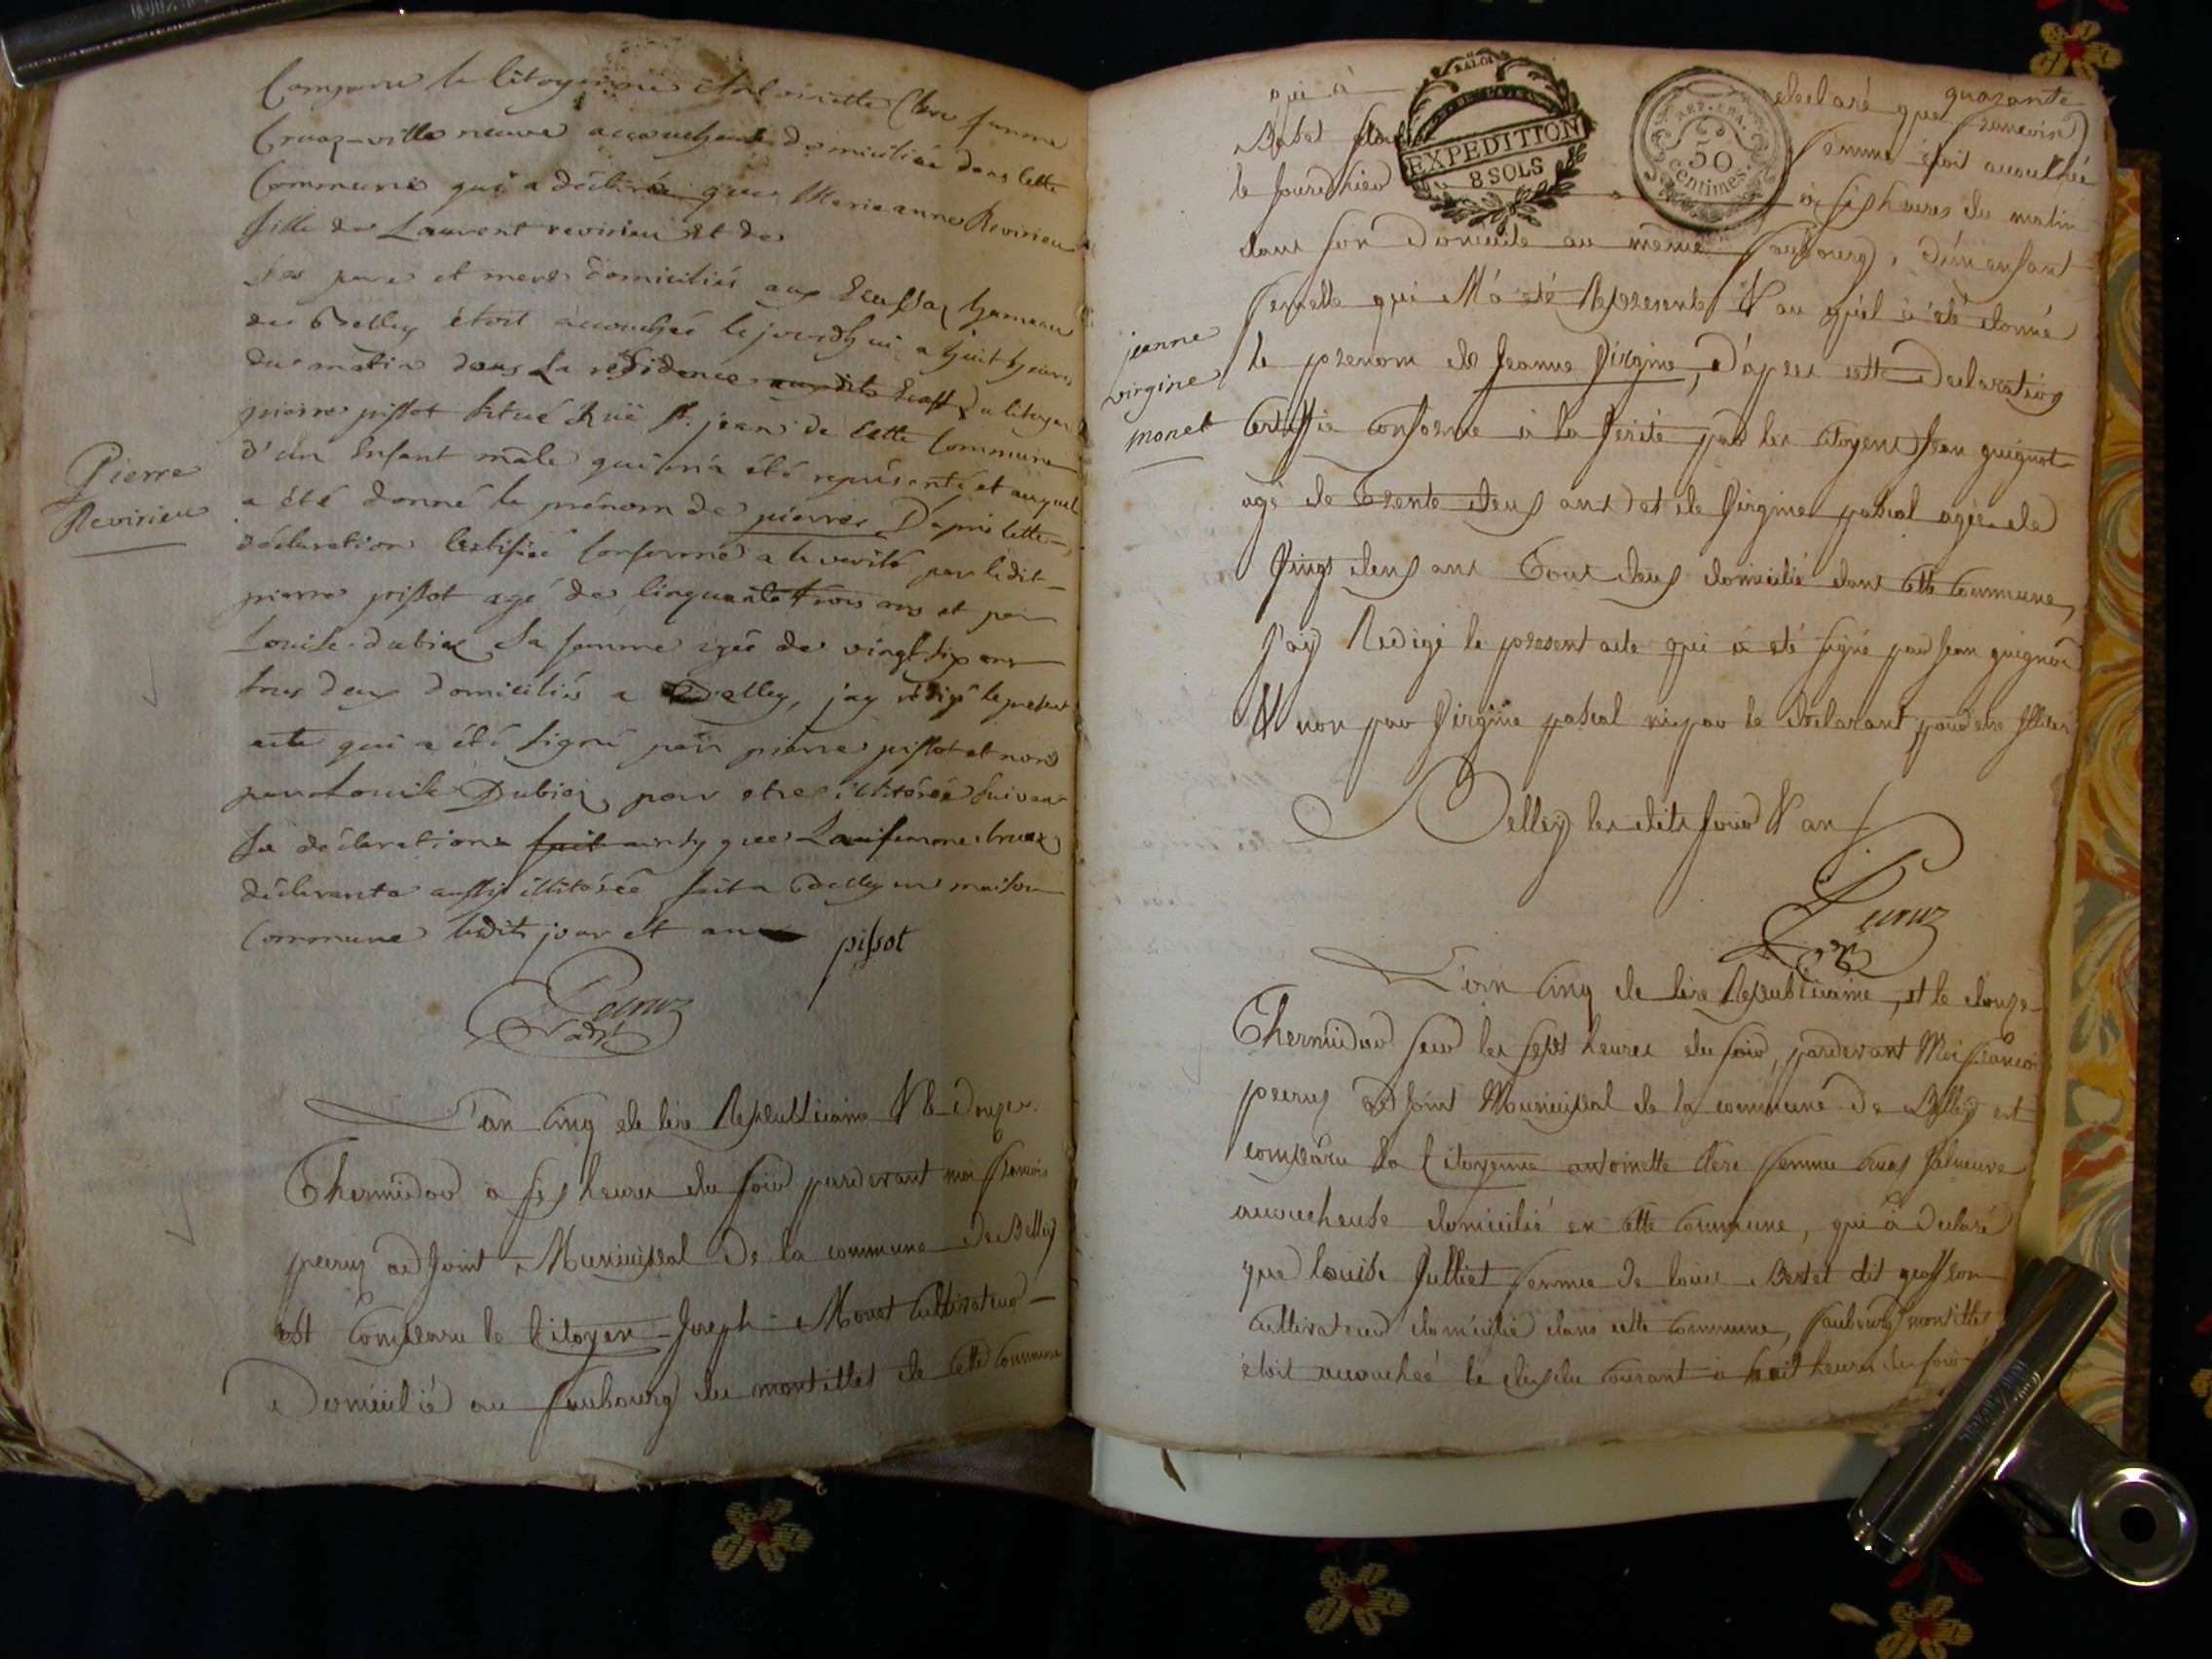 Comparu la Citoyenne Antoinette Clerc femme
Cruaz-ville neuve accoucheuse domiciliée dans cette
Commune qui a déclarée que Marie anne Revirieu
fille de Laurent revirieu et de
ses pere et mere domiciliés aux Ecassaz hameau
de Belley étoit accouchée le jourdhui a huit heures
du matin dans la résidence du citoyen
pierre pissot situé Ruë St. jean de cette Commune
d'un Enfant mâle qui m'a été représenté et auquel
a été donné le prénom de pierre, D'après cette
déclaration Certifiée Conforme a la verité par ledit
pierre pissot agé de Cinquante trois ans et par
Louise dubiez sa femme agée de vingt six ans
tous deux domiciliés a Belley, jay rédigé le present
acte qui a été signé par pierre pissot et non
par Louise Dubiez pour etre illitérée suivant
sa déclaration fait ainsy que La femme Cruaz
déclarante aussy illitérée fait a Belley en maison
Commune lesdits jour et an
pissot
Peeruz
adjt
Pierre
Revirieu
L'an Cinq de l'ère Republicaine & le Douze
Thermidor à six heures du soir pardevant moi francois
peeruz adjoint Municipal de la commune de Belley
est Comparu le Citoyen Joseph Monet Cultivateur
Domicilié au faubourg du montillet de cette Commune
qui à declaré que quarante
francoise
Bobet sa femme étoit accouchée
le jourdhier à six heures du matin
EXPEDITION
8 SOLS
REP. FRA.
50
Centimes
dans son domicile au même faubourg, d'un enfant
femelle qui M'a été Representé & au quel à été donné
le prenom de Jeanne Virgine, D'après cette Declaration
Certiffié conforme à la Verité par les Citoyens Jean guignot
agé de trente deux ans et de Virgine pascal agée de
Vingt deux ans tout deux domicilié dans cette Commune,
J'ay Redigé le present acte qui à été signé par Jean guignot
& non par Virgine pascal ni par le declarant pour etre
Belley les dits jour & an
Peeruz
adjt
jeanne
virgine
monet
L'an Cinq de l'ère Republicaine, et le douze
Thermidor sur les sept heures du soir, pardevant Moi francois
peeruz adjoint Municipal de la commune de Belley est
comparu la Citoyenne antoinette Clerc femme Cruaz Valneuve
accoucheuse domicilié en cette Commune, qui à declaré
que louise Julliet femme de louis Bertet dit
Cultivateur domicilié dans cette Commune, faubourg montillet
étoit accouchée le dix du courant à huit heures du soir